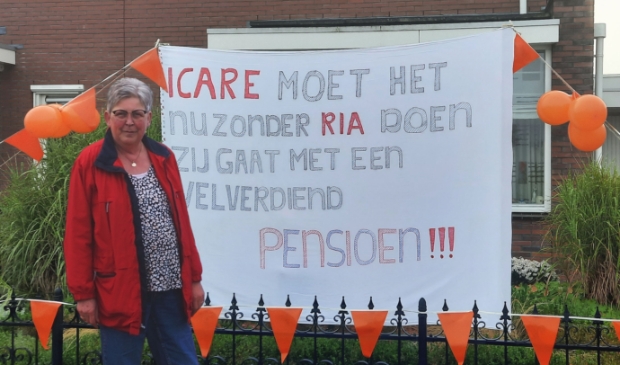 ICARE MOET HET
NU ZONDER RIA DOEN
ZIJ GAAT MET EEN
WELVERDIEND
PENSIOEN!!!